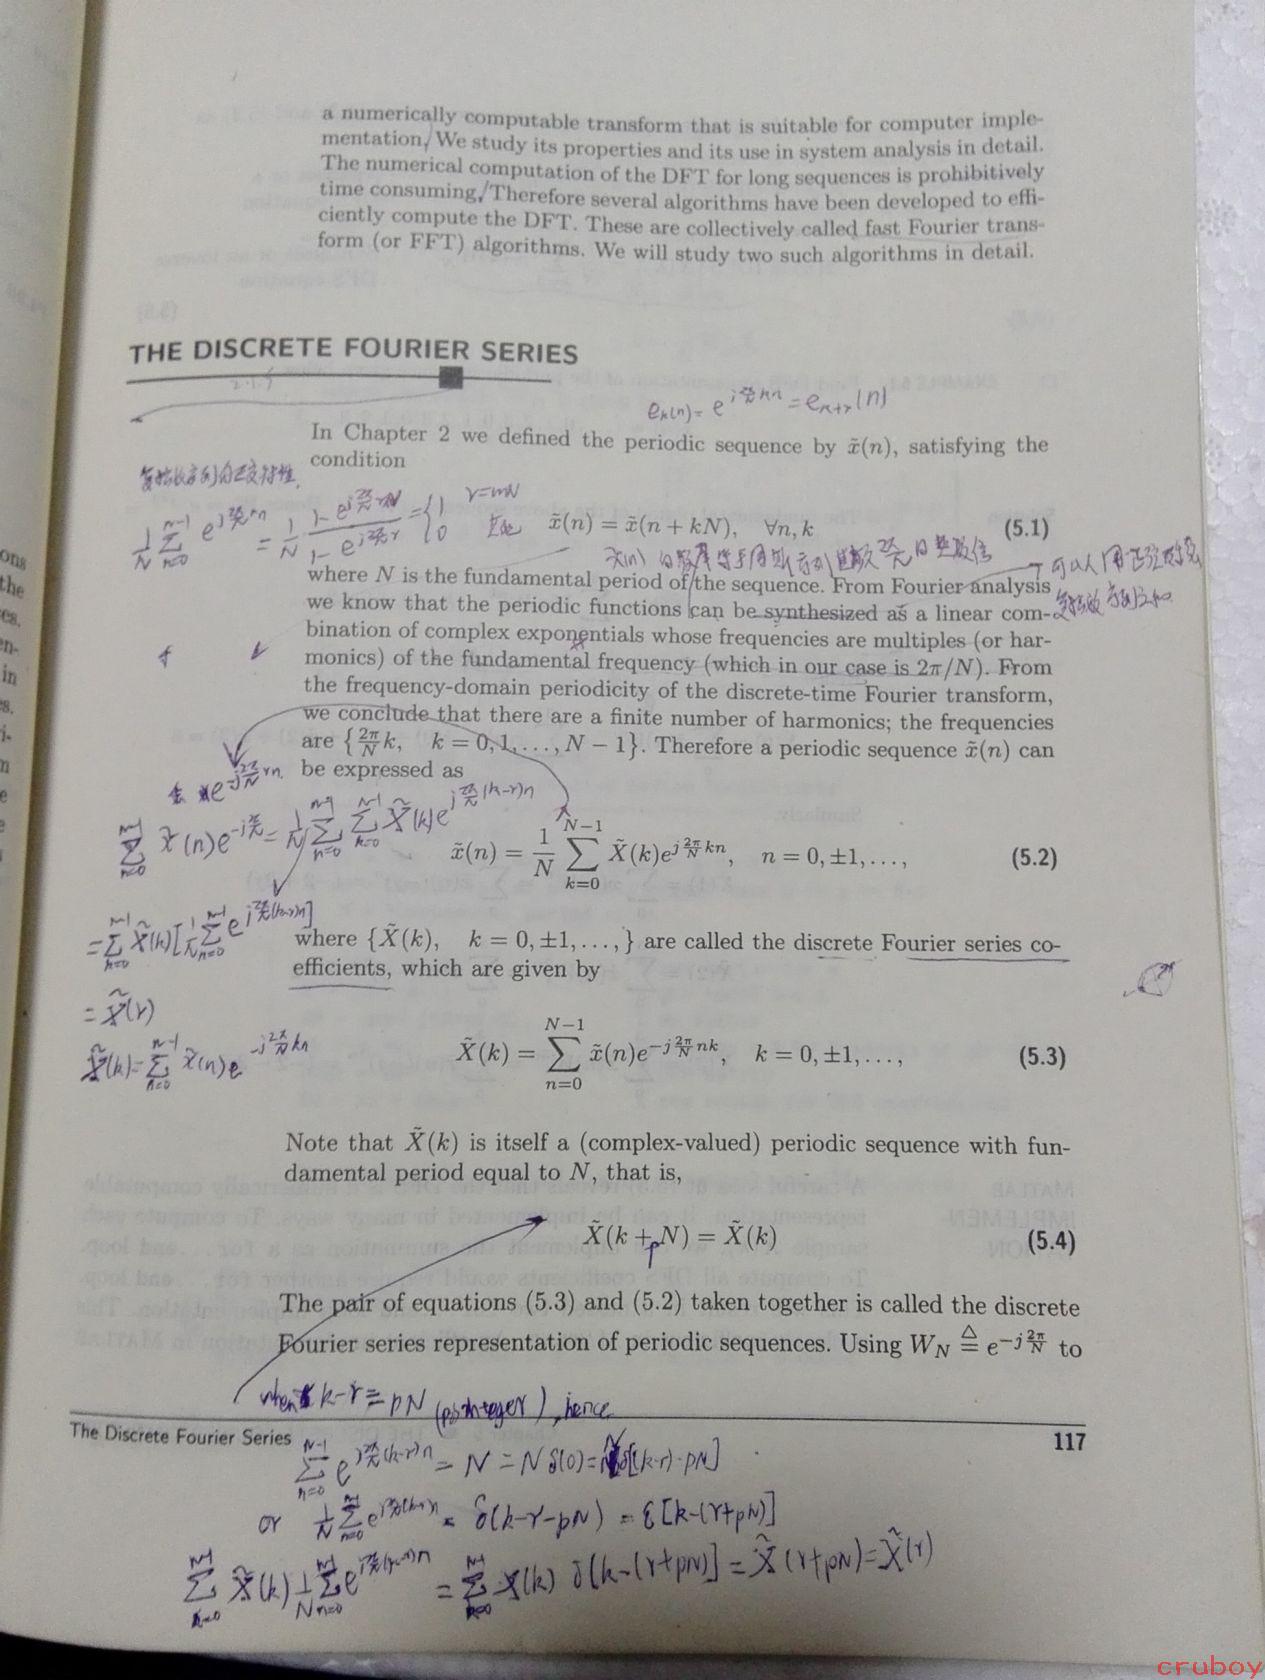 a numerically computable transform that is suitable for computer imple-
mentation. We study its properties and its use in system analysis in detail.
The numerical computation of the DFT for long sequences is prohibitively
time consuming. Therefore several algorithms have been developed to effi-
ciently compute the DFT. These are collectively called fast Fourier trans-
form (or FFT) algorithms. We will study two such algorithms in detail.
THE DISCRETE FOURIER SERIES
2.1.5
e_k(n) = e^{j 2π/N kn} = e_{k+r}(n)
In Chapter 2 we defined the periodic sequence by x̃(n), satisfying the
condition
复指数序列的正交特性.
1/N Σ_{n=0}^{N-1} e^{j 2π/N rn} = 1/N (1 - e^{j 2π/N rN})/(1 - e^{j 2π/N r}) = { 1 r=mN
0 其他
x̃(n) = x̃(n + kN), ∀n, k (5.1)
where N is the fundamental period of the sequence. From Fourier analysis
可以用
we know that the periodic functions can be synthesized as a linear com-
复指数序列之和
bination of complex exponentials whose frequencies are multiples (or har-
monics) of the fundamental frequency (which in our case is 2π/N). From
the frequency-domain periodicity of the discrete-time Fourier transform,
we conclude that there are a finite number of harmonics; the frequencies
are {2π/N k, k = 0, 1, . . . , N − 1}. Therefore a periodic sequence x̃(n) can
be expressed as
e^{-j 2π/N rn}
Σ_{n=0}^{N-1} x̃(n)e^{-j 2π/N} = 1/N Σ_{n=0}^{N-1} Σ_{k=0}^{N-1} X̃(k)e^{j 2π/N (k-r)n}
x̃(n) = 1/N Σ_{k=0}^{N−1} X̃(k)e^{j 2π/N kn}, n = 0, ±1, . . . , (5.2)
= Σ_{k=0}^{N-1} X̃(k)[1/N Σ_{n=0}^{N-1} e^{j 2π/N (k-r)n}]
where {X̃(k), k = 0, ±1, . . . , } are called the discrete Fourier series co-
efficients, which are given by
= X̃(r)
X̃(k) = Σ_{n=0}^{N-1} x̃(n)e^{-j 2π/N kn}
X̃(k) = Σ_{n=0}^{N−1} x̃(n)e^{−j 2π/N nk}, k = 0, ±1, . . . , (5.3)
Note that X̃(k) is itself a (complex-valued) periodic sequence with fun-
damental period equal to N, that is,
X̃(k + pN) = X̃(k) (5.4)
The pair of equations (5.3) and (5.2) taken together is called the discrete
Fourier series representation of periodic sequences. Using W_N ≜ e^{−j 2π/N} to
when k-r = pN (p is integer), hence
The Discrete Fourier Series 117
Σ_{n=0}^{N-1} e^{j 2π/N (k-r)n} = N = Nδ(0) = Nδ[(k-r)-pN]
or 1/N Σ_{n=0}^{N-1} e^{j 2π/N (k-r)n} = δ(k-r-pN) = δ[k-(r+pN)]
Σ_{k=0}^{N-1} X̃(k) 1/N Σ_{n=0}^{N-1} e^{j 2π/N (k-r)n} = Σ_{k=0}^{N-1} X(k) δ[k-(r+pN)] = X̃(r+pN) = X̃(r)
cruboy